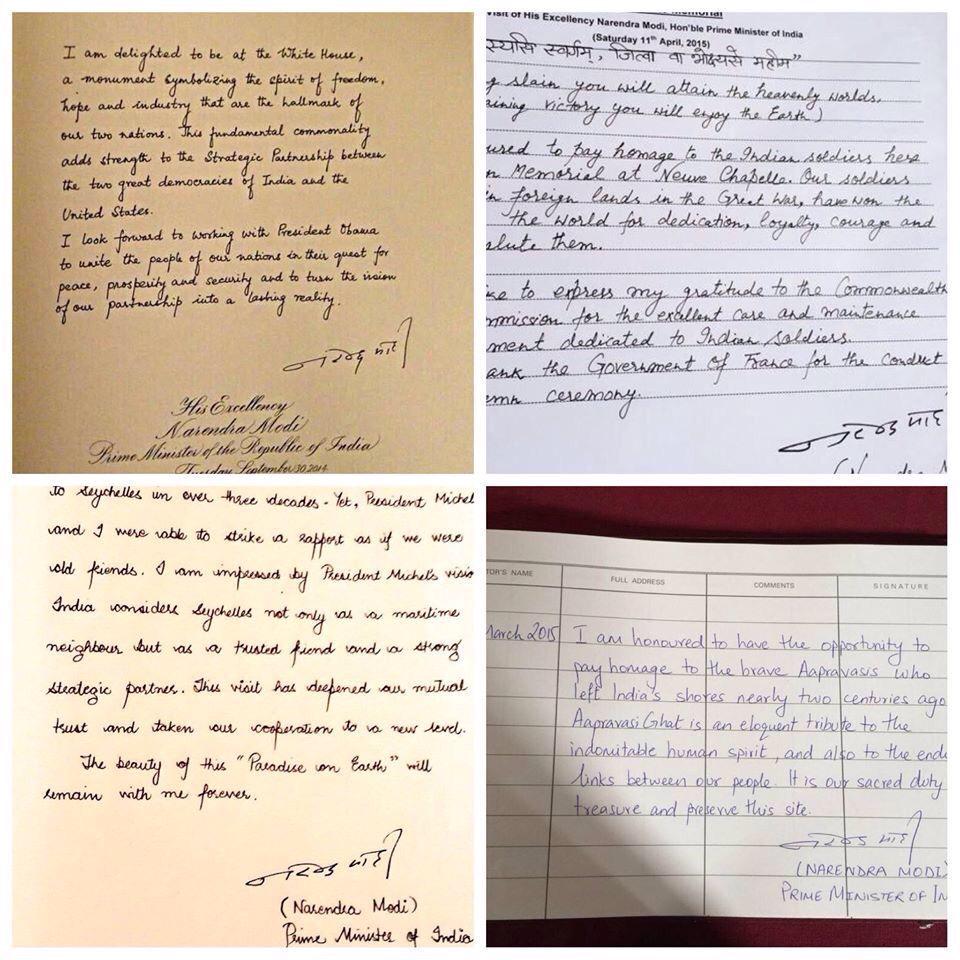 I am delighted to be at the White House,
a monument symbolizing the spirit of freedom,
hope and industry that are the hallmark of
our two nations. This fundamental commonality
adds strength to the Strategic Partnership between
the two great democracies of India and the
United States.
I look forward to working with President Obama
to unite the people of our nations in their quest for
peace, prosperity and security and to turn the vision
of our partnership into a lasting reality.
नरेन्द्र मोदी
His Excellency
Narendra Modi
Prime Minister of the Republic of India
Tuesday September 30 2014
Memorial
Visit of His Excellency Narendra Modi, Hon'ble Prime Minister of India
(Saturday 11th April, 2015)
स्यसि स्वर्गम्, जित्वा वा भोक्ष्यसे महीम"
g slain you will attain the heavenly worlds,
aining victory you will enjoy the Earth)
ured to pay homage to the Indian soldiers here
n Memorial at Neuve Chapelle. Our soldiers
in foreign lands in the Great War, have won the
the world for dedication, loyalty, courage and
alute them.
ike to express my gratitude to the Commonwealth
mmission for the excellent care and maintenance
ment dedicated to Indian soldiers.
ank the Government of France for the conduct
emn ceremony.
नरेन्द्र मोदी
to Seychelles in over three decades. Yet, President Michel
and I were able to strike a rapport as if we were
old friends. I am impressed by President Michel's visio
India considers Seychelles not only as a maritime
neighbour but as a trusted friend and a strong
strategic partner. This visit has deepened our mutual
trust and taken our cooperation to a new level.
The beauty of this "Paradise on Earth" will
remain with me forever.
नरेन्द्र मोदी
(Narendra Modi)
Prime Minister of India
TOR'S NAME FULL ADDRESS COMMENTS SIGNATURE
March 2015 I am honoured to have the opportunity to
pay homage to the brave Aapravasis who
left India's shores nearly two centuries ago
Aapravasi Ghat is an eloquent tribute to the
indomitable human spirit, and also to the endu
links between our people. It is our sacred duty
treasure and preserve this site.
नरेन्द्र मोदी
(NARENDRA MODI)
PRIME MINISTER OF IN